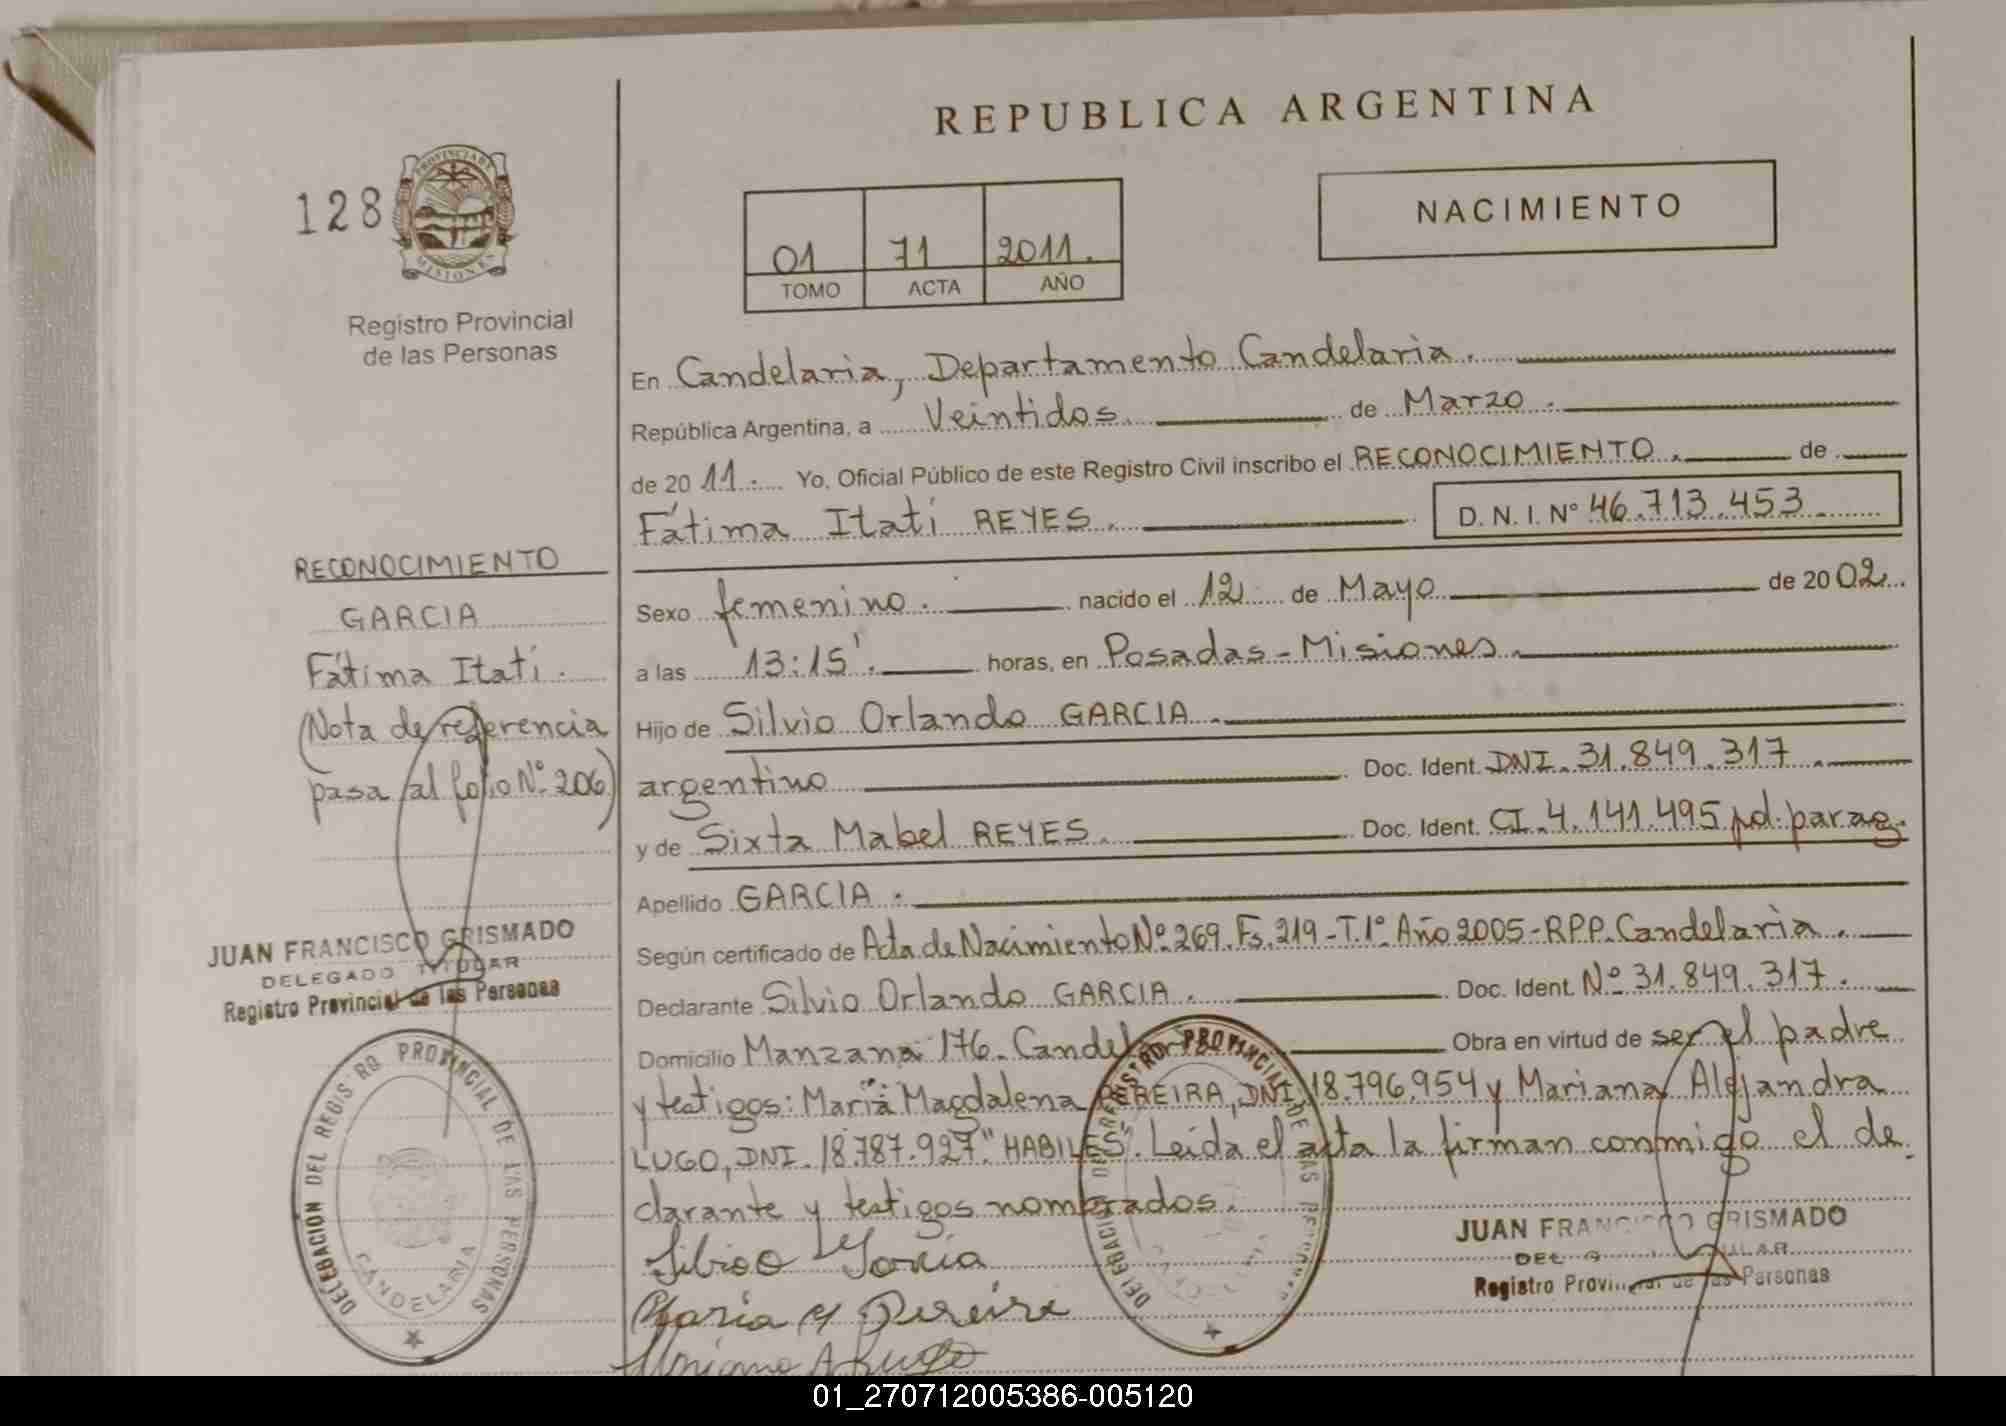 REPUBLICA ARGENTINA
128
PROVINCIA DE
MISIONES
Registro Provincial
de las Personas
01 71 2011.
TOMO ACTA AÑO
NACIMIENTO
En Candelaria, Departamento Candelaria.
República Argentina, a Veintidos de Marzo.
de 2011. Yo, Oficial Público de este Registro Civil inscribo el RECONOCIMIENTO. de
Fátima Itatí REYES. D.N.I. Nº 46.713.453.
Sexo femenino. nacido el 12 de Mayo de 2002
a las 13:15'. horas, en Posadas - Misiones.
Hijo de Silvio Orlando GARCIA.
argentino Doc. Ident. DNI. 31.849.317.
y de Sixta Mabel REYES. Doc. Ident. CI. 4.141.495 pd. parag.
Apellido GARCIA.
Según certificado de Acta de Nacimiento Nº 269. Fs. 219 - T. 1º Año 2005 - RPP. Candelaria.
Declarante Silvio Orlando GARCIA. Doc. Ident. Nº 31.849.317.
Domicilio Manzana 176. Candelaria Obra en virtud de ser el padre
y testigos: María Magdalena PEREIRA, DNI 18.796.954 y Mariana Alejandra
LUGO, DNI. 18.787.927 "HABILES". Leída el acta la firman conmigo el de
clarante y testigos nombrados.
Silvio García
María M Pereira
Mariana A Lugo
RECONOCIMIENTO
GARCIA
Fátima Itatí.
(Nota de referencia
pasa al folio Nº 206)
JUAN FRANCISCO GRISMADO
DELEGADO TITULAR
Registro Provincial de las Personas
DELEGACION DEL REGISTRO PROVINCIAL DE LAS PERSONAS
CANDELARIA
DELEGACION DEL REGISTRO PROVINCIAL DE LAS PERSONAS
JUAN FRANCISCO GRISMADO
DELEGADO TITULAR
Registro Provincial de las Personas
01_270712005386-005120